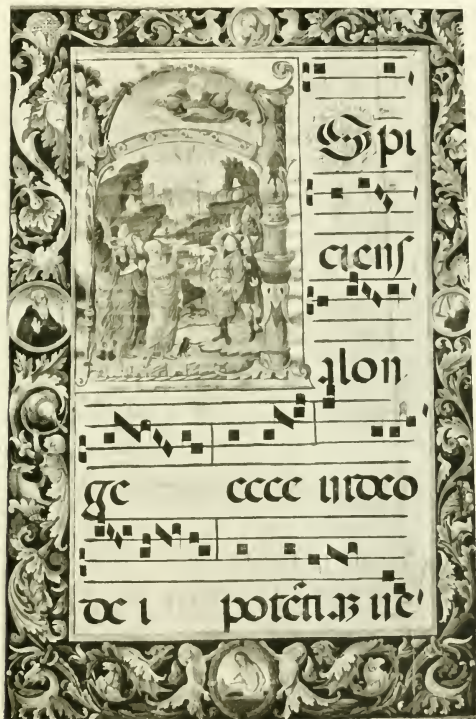 Spi
ciens
alon
ge ecce uideo
de i potẽtiaz ue